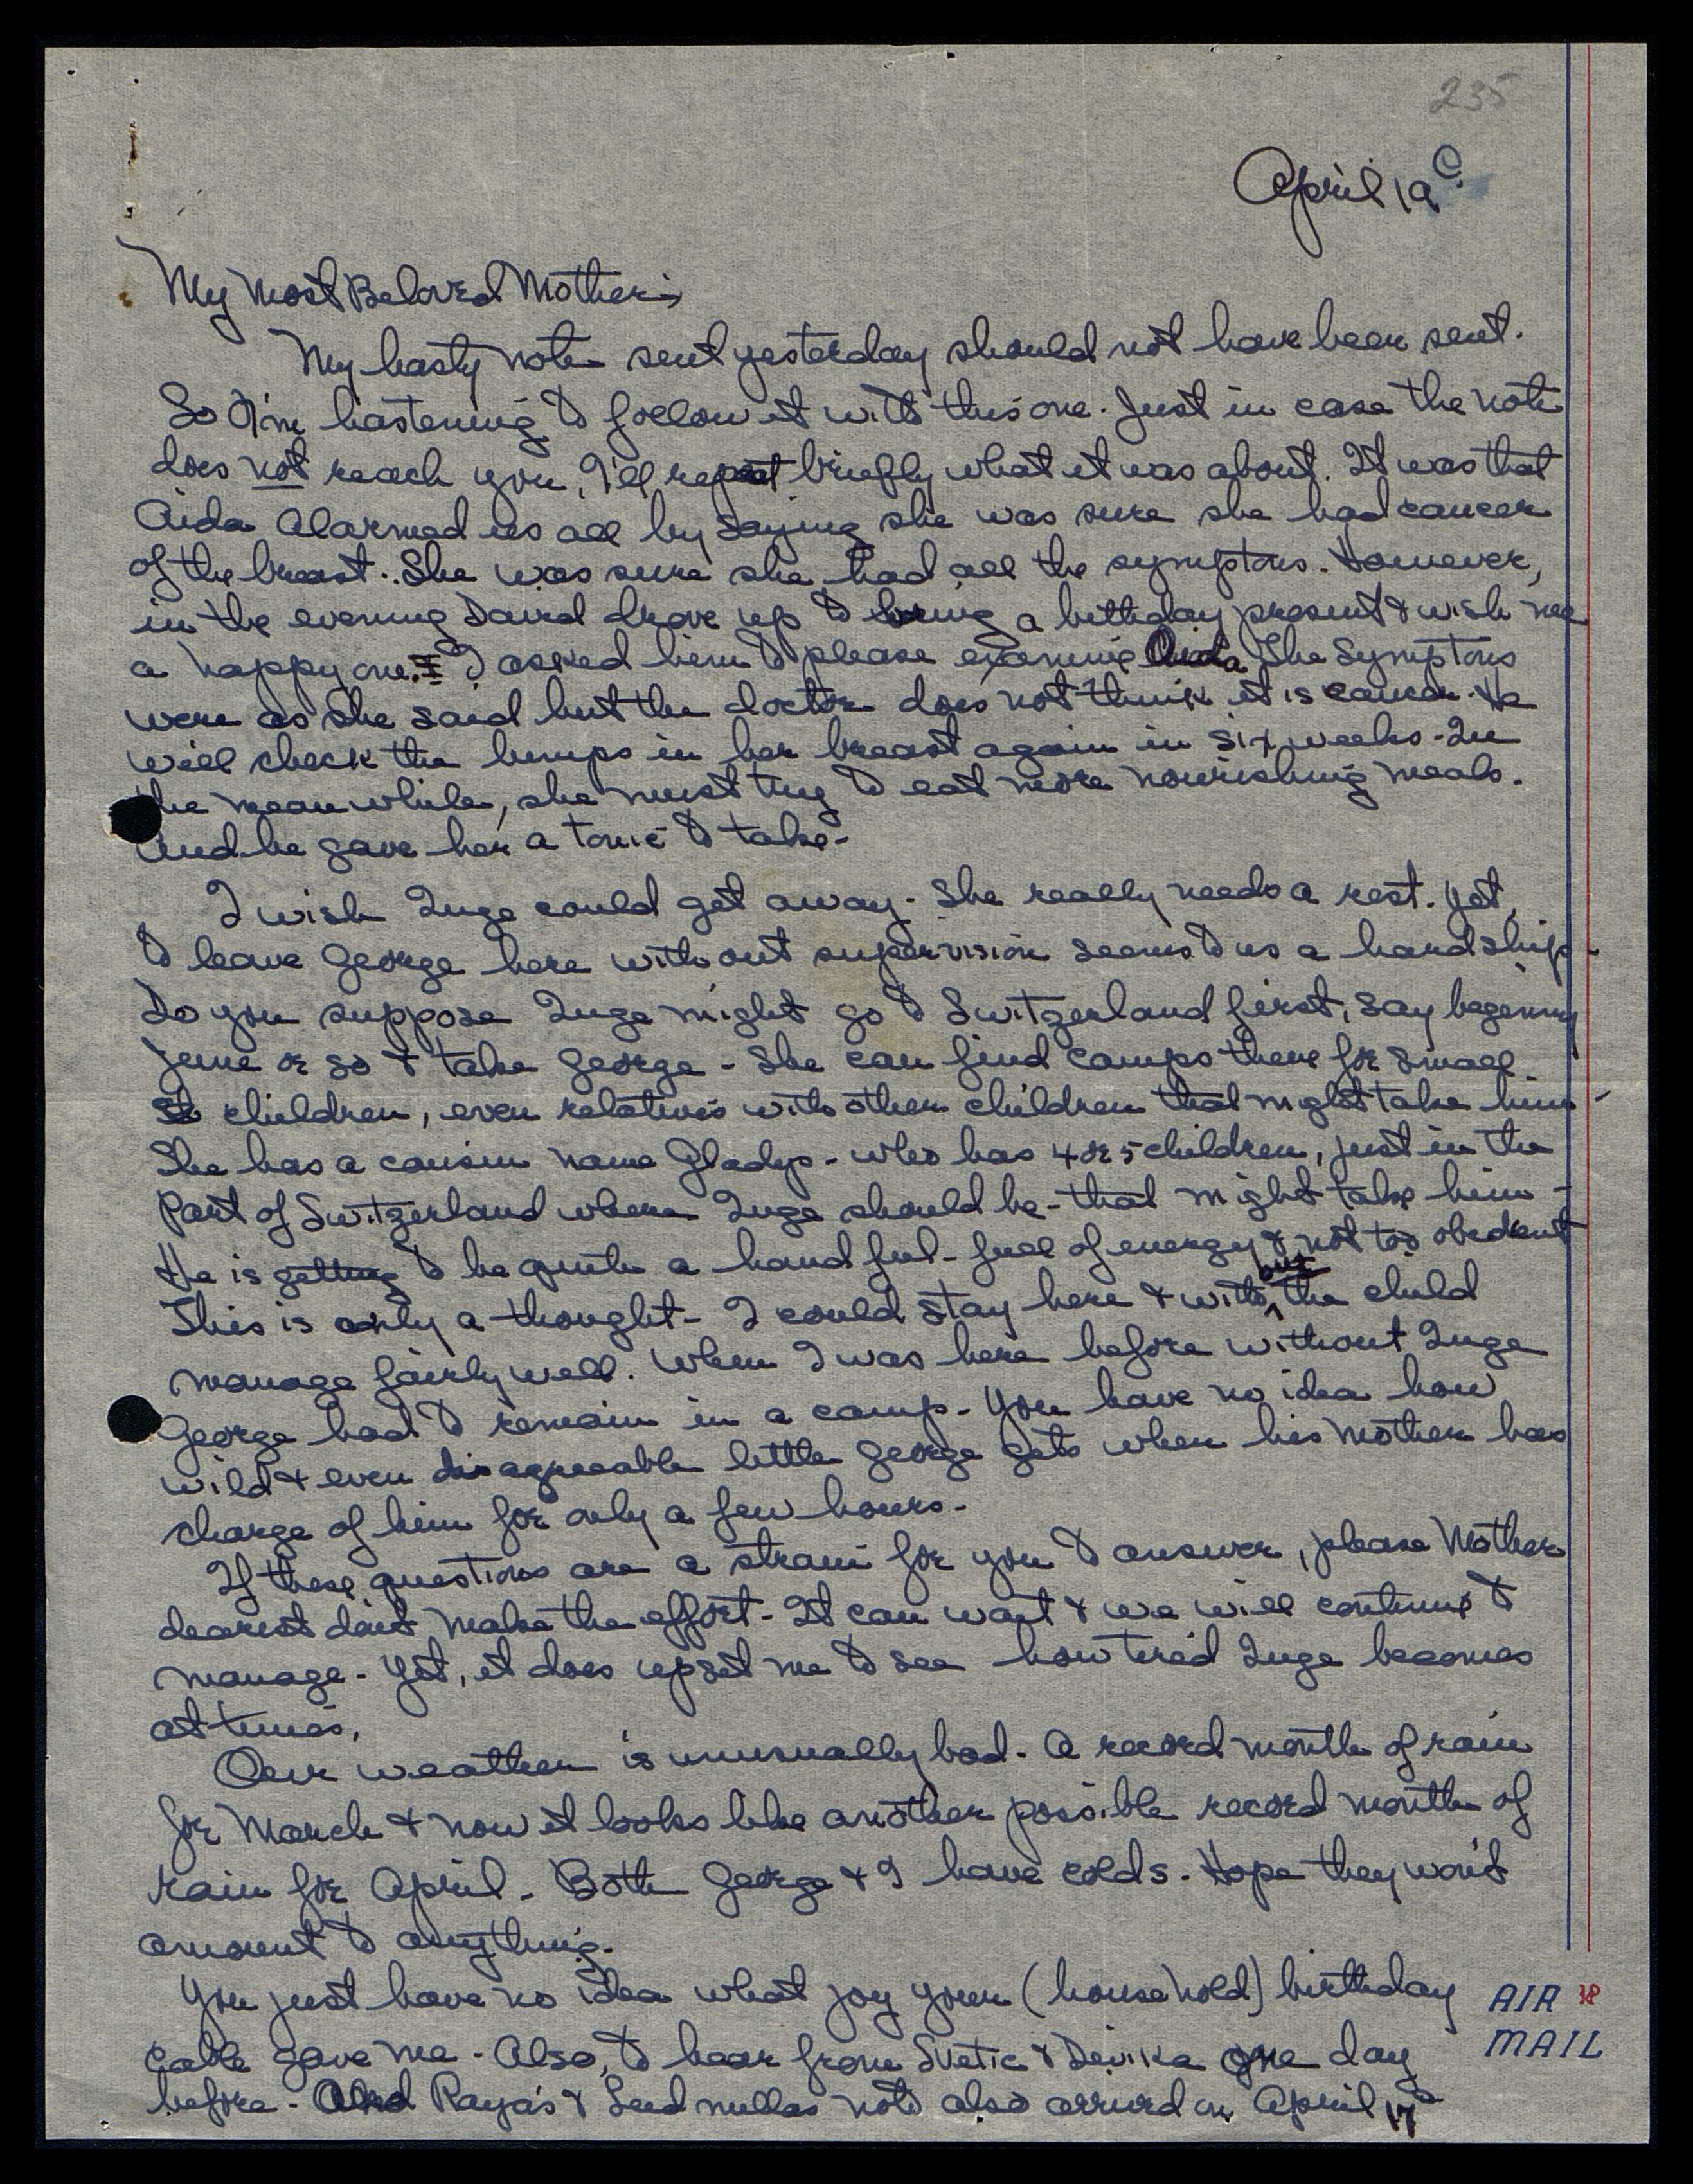 235
April 19
My Most Beloved Mother;
My hasty note sent yesterday should not have been sent.
So I'm hastening to follow it with this one. Just in case the note
does not reach you, I'll repeat briefly what it was about. It was that
Aida Alarmed us all by saying she was sure she had cancer
of the breast.. She was sure she had all the symptoms. However,
in the evening David drove up to bring a birthday present & wish me
a happy one. I asked him to please examine Aida. The symptoms
were as she said but the doctor does not think it is cancer. He
will check the lumps in her breast again in six weeks - In
the mean while, she must try to eat more nourishing meals.
And he gave her a tonic to take -
I wish Inge could get away. She really needs a rest. Yet,
to leave George here without supervision seems to us a hardship -
Do you suppose Inge might go to Switzerland first, say beginning
June or so & take George - She can find camps there for small
children, even relatives with other children that might take him -
She has a cousin name Gladys - who has 4 or 5 children, just in the
part of Switzerland where Inge should be - that might take him -
He is getting to be quite a handful - full of energy & not too obedient
This is only a thought - I could stay here & without the child
manage fairly well. When I was here before without Inge
George had to remain in a camp - You have no idea how
wild & even disagreeable little George gets when his Mother has
charge of him for only a few hours -
If these questions are a strain for you to answer, please Mother
dearest don't make the effort - It can wait & we will continue to
manage - Yet, it does upset me to see how tired Inge becomes
at times.
Our weather is unusually bad - A record month of rain
for March & now it looks like another possible record month of
rain for April - Both George & I have colds - Hope they won't
amount to anything.
You just have no idea what joy your (household) birthday
cable gave me - Also, to hear from Svetic & Devika one day
before - And Raya's & Leudmillas note also arrived on April 17
AIR
MAIL